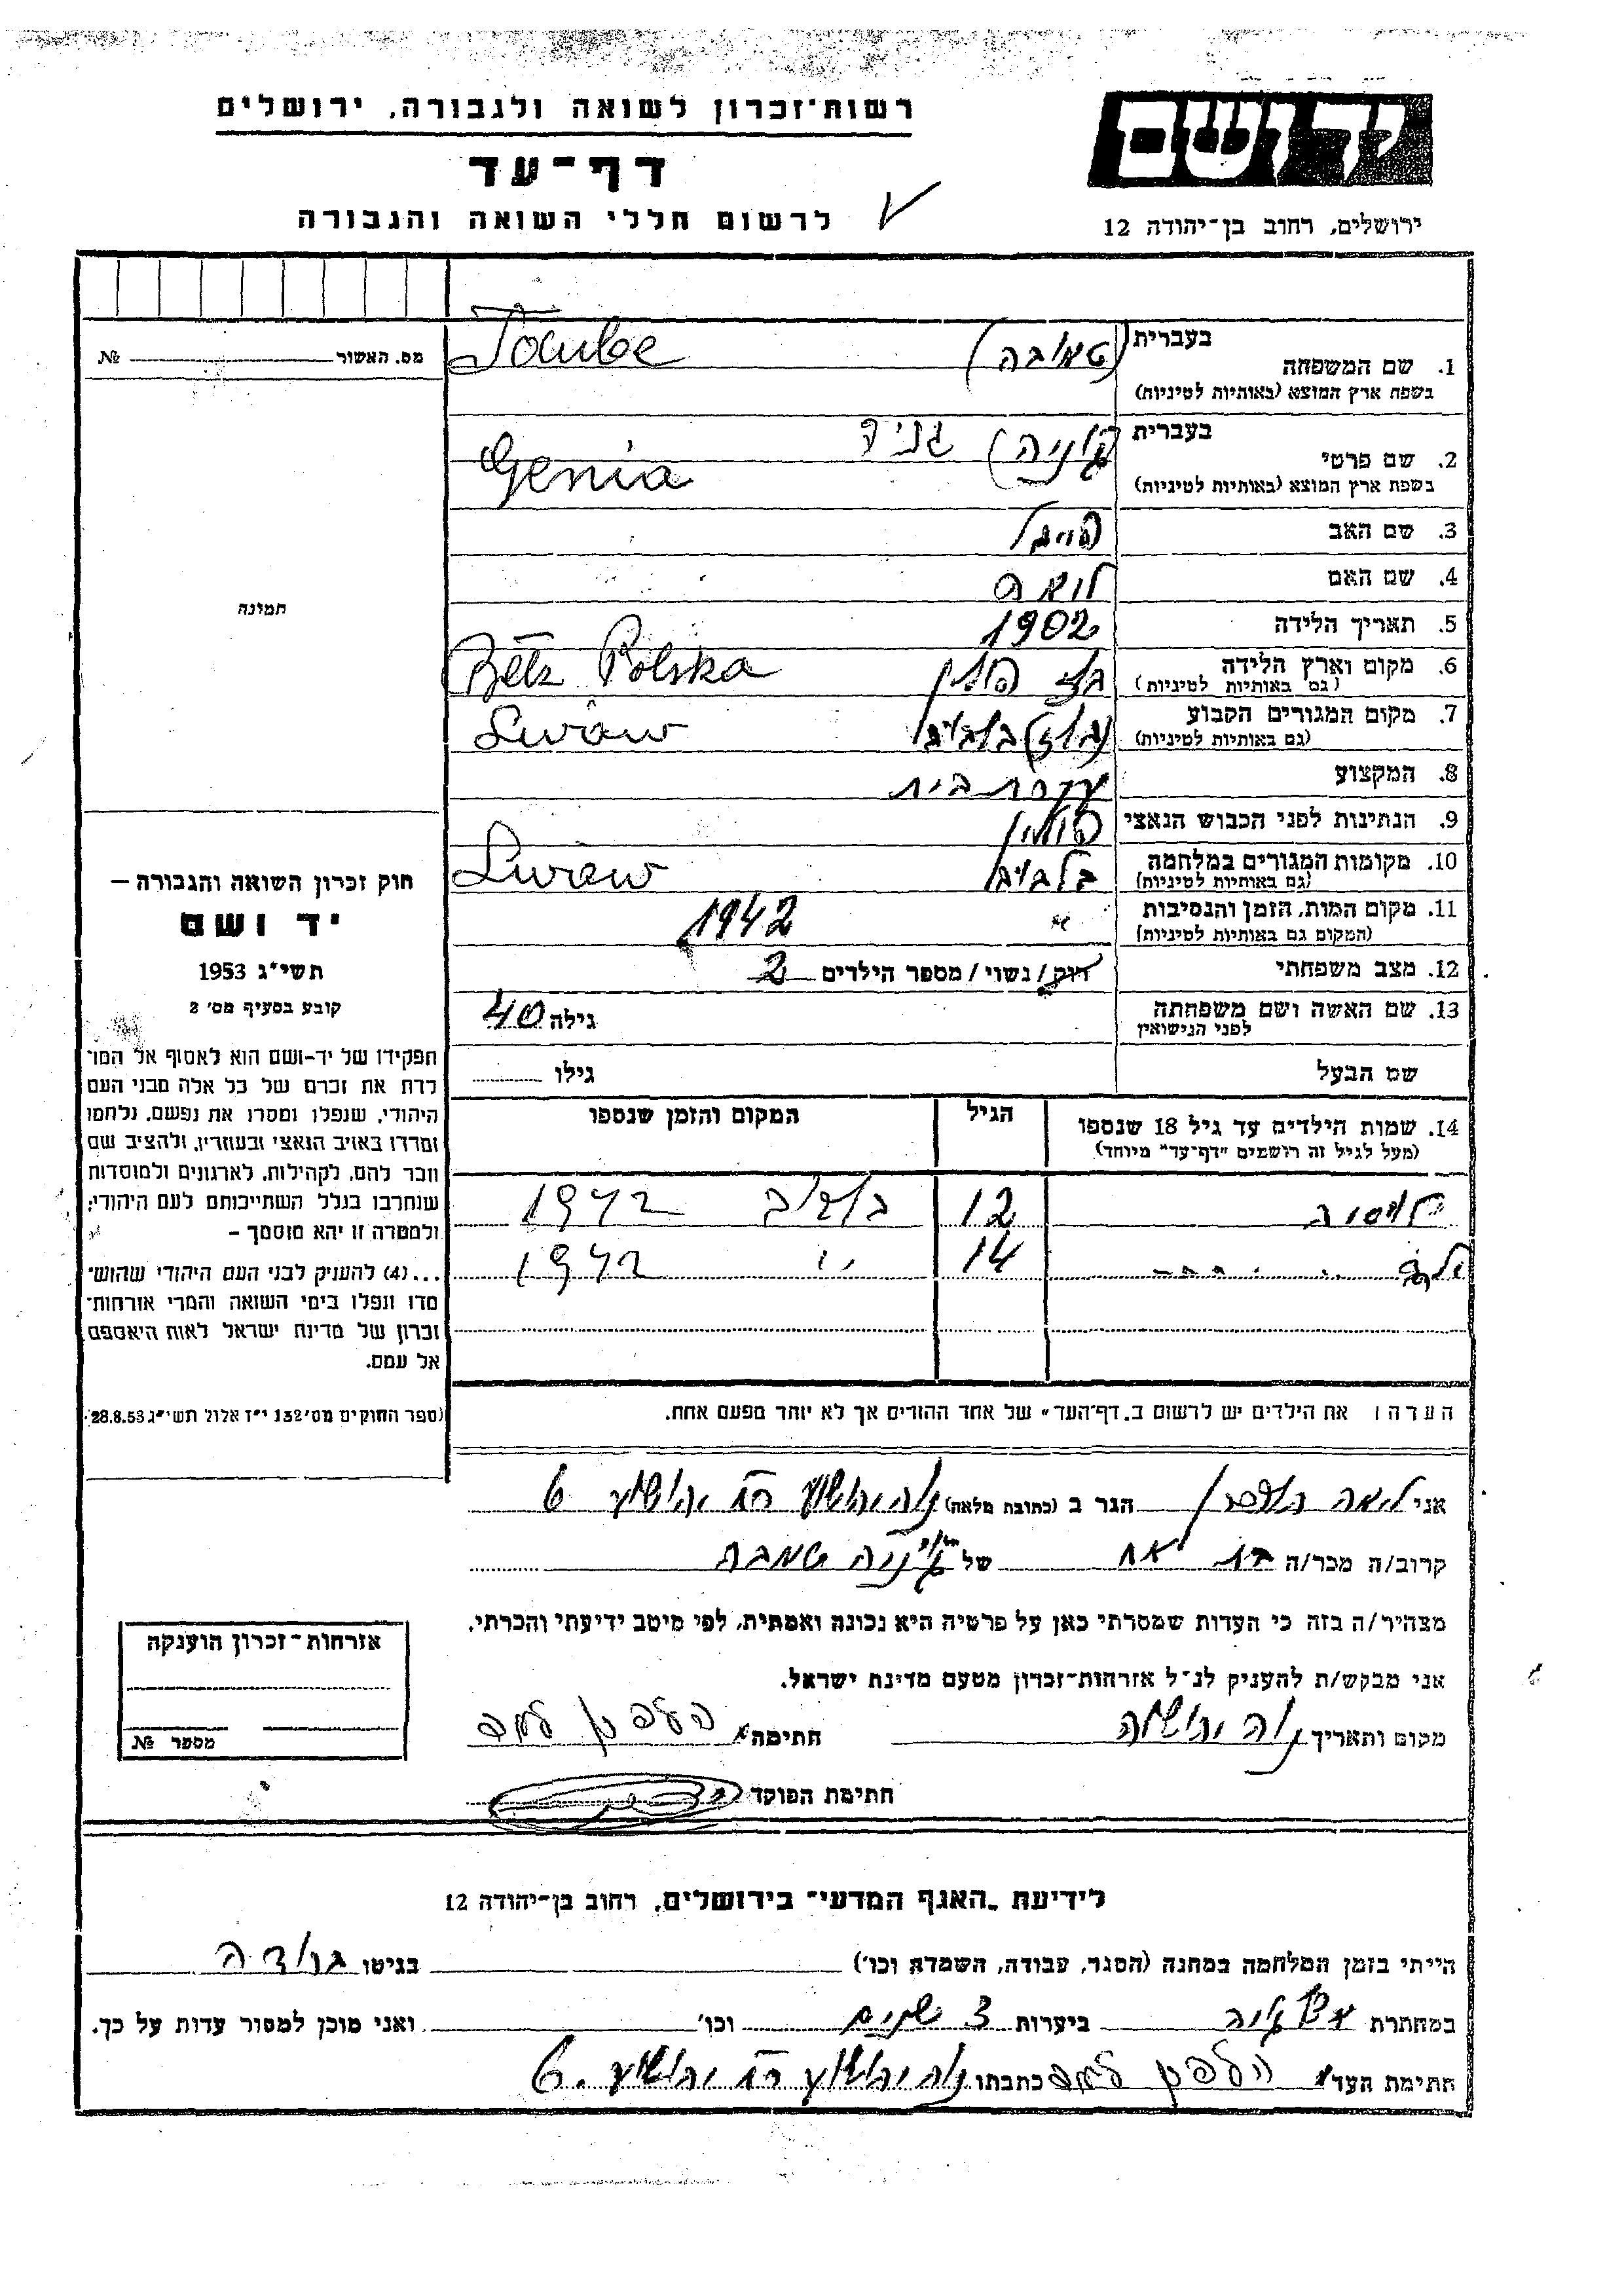 יד ושם
רשות־זכרון לשואה ולגבורה, ירושלים
דף־עד
לרשום חללי השואה והגבורה
ירושלים, רחוב בן־יהודה 12
בעברית (טאובה) Taube
1. שם המשפחה
בשפת ארץ המוצא (באותיות לטיניות)
בעברית
2. שם פרטי Genia
בשפת ארץ המוצא (באותיות לטיניות)
3. שם האב
4. שם האם
5. תאריך הלידה 1902
6. מקום וארץ הלידה בלז פולין Bełz Polska
(גם באותיות לטיניות)
7. מקום המגורים הקבוע Lwów
(גם באותיות לטיניות)
8. המקצוע עקרת בית
9. הנתינות לפני הכבוש הנאצי פולין
10. מקומות המגורים במלחמה בלבוב Lwów
(גם באותיות לטיניות)
11. מקום המות, הזמן והנסיבות " 1942
(המקום גם באותיות לטיניות)
12. מצב משפחתי רווק/נשוי/מספר הילדים 2
13. שם האשה ושם משפחתה גילה 40
לפני הנישואין
שם הבעל גילו
14. שמות הילדים עד גיל 18 שנספו הגיל המקום והזמן שנספו
(מעל לגיל זה רושמים "דף־עד" מיוחד)
12 1942
14 " 1942
הערה: את הילדים יש לרשום ב"דף־העד" של אחד ההורים אך לא יותר מפעם אחת.
מס. האשור №
תמונה
חוק זכרון השואה והגבורה —
יד ושם
תשי"ג 1953
קובע בסעיף מס' 2
תפקידו של יד-ושם הוא לאסוף אל המו־
לדת את זכרם של כל אלה מבני העם
היהודי, שנפלו ומסרו את נפשם, נלחמו
ומרדו באויב הנאצי ובעוזריו, ולהציב שם
וזכר להם, לקהילות, לארגונים ולמוסדות
שנחרבו בגלל השתייכותם לעם היהודי;
ולמטרה זו יהא מוסמך –
...(4) להעניק לבני העם היהודי שהוש־
מדו ונפלו בימי השואה והמרי אזרחות־
זכרון של מדינת ישראל לאות היאספם
אל עמם.
(ספר החוקים מס' 132 י"ז אלול תשי"ג 28.8.53)
אני הגר ב (כתובת מלאה) 6
קרוב/ה מכר/ה בת אח של טאובה
מצהיר/ה בזה כי העדות שמסרתי כאן על פרטיה היא נכונה ואמתית, לפי מיטב ידיעתי והכרתי.
אני מבקש/ת להעניק לנ"ל אזרחות־זכרון מטעם מדינת ישראל.
מקום ותאריך חתימה
חתימת הפוקד
אזרחות־זכרון הוענקה
מספר №
לידיעת "האגף המדעי" בירושלים, רחוב בן־יהודה 12
הייתי בזמן המלחמה במחנה (הסגר, עבודה, השמדה וכו') בגיטו
במחתרת ביערות 3 שנים וכו' ואני מוכן למסור עדות על כך.
חתימת העד כתבתו 6